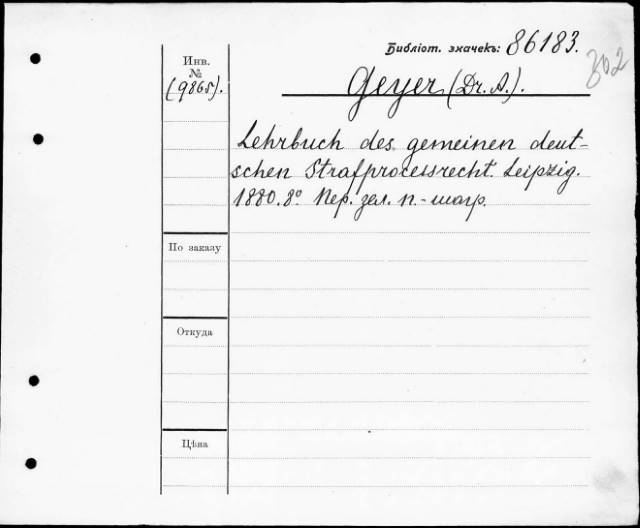 Библіот. значекъ: 86183.
302
Инв.
№
(9865).
Geyer (Dr. A.).
Lehrbuch des gemeinen deut-
schen Strafprocessrecht. Leipzig.
1880. 8º. Пер. зел. п.-шагр.
По заказу
Откуда
Цѣна